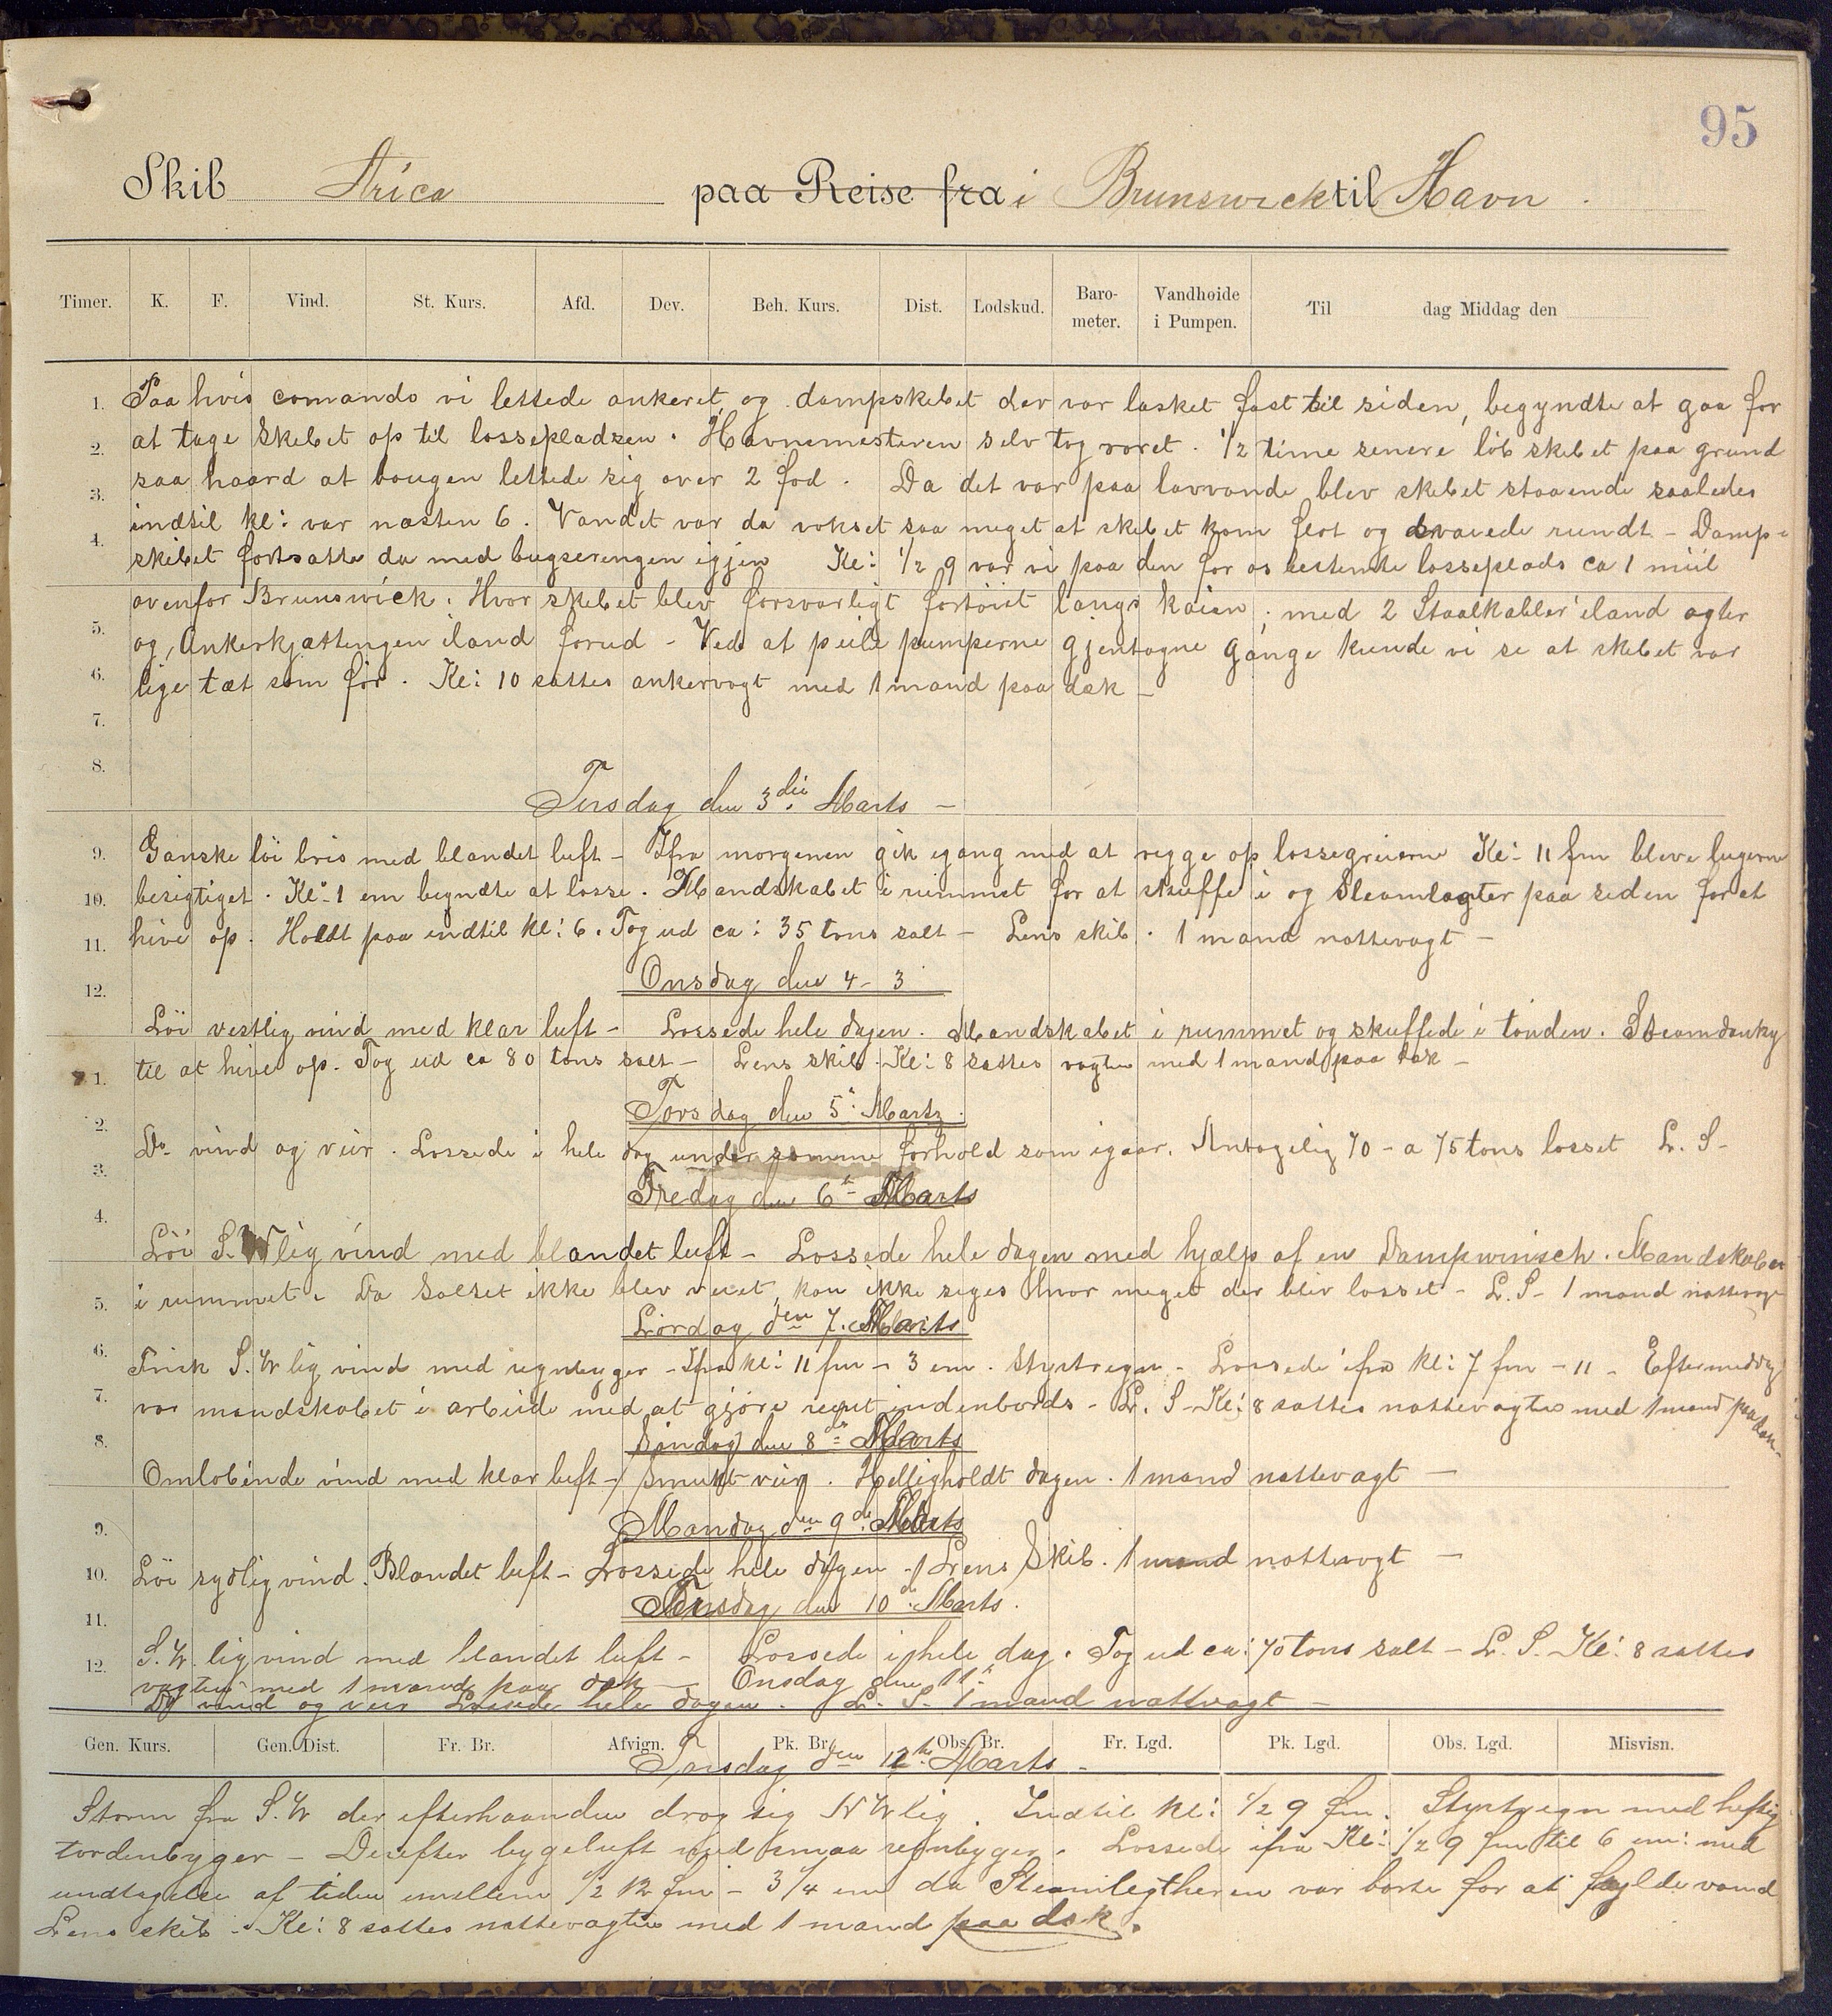 95
Skib Arica paa Reise fra i Brunswick til Havn.
Timer. K. F. Vind. St. Kurs. Afd. Dev. Beh. Kurs. Dist. Lodskud. Baro-meter. Vandhøide i Pumpen. Til dag Middag den
1. Paa hvis comando vi lettede ankeret, og dampskibet der var lasket fast til siden, begyndte at gaa for
2. at tage skibet op til lossepladsen. Havnemesteren selv tog roret. 1/2 time senere løb skibet paa grund
3. saa haard at bougen lettede sig over 2 fod. Da det var paa lavvande blev skibet staaende saaledes
4. indtil kl: var næsten 6. Vandet var da vokset saa meget at skibet kom flot og svaiede rundt - Damp-
skibet fortsatte da med bugseringen igjen Kl: 1/2 9 var vi paa den for os bestemte losseplads ca 1 miil
5. ovenfor Brunswick. Hvor skibet blev forsvarligt fortøiet langs kaien, med 2 Staalkabler iland agter
og, Ankerkjættingen iland forud - Ved at peile pumperne gjentagne gange kunde vi se at skibet var
6. lige tæt som før. Kl: 10 sattes ankervagt med 1 mand paa dæk -
7.
8.
Tirsdag den 3die Marts -
9. Ganske løi bris med blandet luft - Ifra morgenen gik igang med at rigge op lossegreierne Kl: 11 fm bleve lugerne
10. besigtiget. Kl: 1 em begyndte at losse. Mandskabet i rummet for at skuffe i og Steamlegter paa siden for at
11. hive op. Holdt paa indtil kl: 6. Tog ud ca: 35 tons salt - Lens skib. 1 mand nattevagt -
12. Onsdag den 4 - 3
Løi vestlig vind med klar luft - Lossede hele dagen. Mandskabet i rummet og skuffede i tønden. Steamdonky
1. til at hive op. Tog ud ca 80 tons salt - Lens skib. Kl: 8 sattes vagten med 1 mand paa dæk -
2. Torsdag den 5. Martz.
Do vind og veir. Lossede i hele dag under samme forhold som igaar. Antagelig 70 - a 75 tons losset L. S -
3. Fredag den 6te Marts
4. Løi S. W lig vind med blandet luft - Lossede hele dagen med hjælp af en Dampwinsch. Mandskabet
5. i rummet. Da Saltet ikke blev veiet, kan ikke siges hvor meget der blev losset - L. S - 1 mand nattevagt
Lördag den 7. Marts
6. Frisk S. W lig vind med regnbyger - Ifra kl: 11 fm - 3 em. Styrtregn - Lossede ifra kl: 7 fm - 11 - Eftermiddag
7. var mandskabet i arbeide med at gjøre rent indenbords - L. S - Kl: 8 sattes nattevagten med 1 mand paa dæk -
8. Søndag den 8de Marts
Omløbende vind med klar luft - smukt veir. Helligholdt dagen. 1 mand nattevagt -
9. Mandag den 9de Marts
10. Løi sydlig vind. Blandet luft - Lossede hele dagen - Lens Skib. 1 mand nattevagt -
11. Tirsdag den 10de Marts.
12. S. W. lig vind med blandet luft - Lossede i hele dag. Tog ud ca: 70 tons salt - L. S. Kl: 8 sattes
vagten med 1 mand paa dæk - Onsdag den 11te
Do vind og veir Lossede hele dagen. L. S. 1 mand nattvagt -
Gen. Kurs. Gen. Dist. Fr. Br. Afvign. Pk. Br. Obs. Br. Fr. Lgd. Pk. Lgd. Obs. Lgd. Misvisn.
Torsdag den 12te Marts -
Storm fra S. W der efterhaanden drog sig N W lig Indtil kl: 1/2 9 fm. Styrtregn med heftig
tordenbyger - Derefter bygeluft med smaa regnbyger. Lossede ifra Kl: 1/2 9 fm til 6 em: med
undtagelse af tiden imellem 1/2 12 fm - 3 1/4 em da Steamlegtheren var borte for at fylde vand
Lens skib - Kl: 8 sattes nattevagten med 1 mand paa dæk.